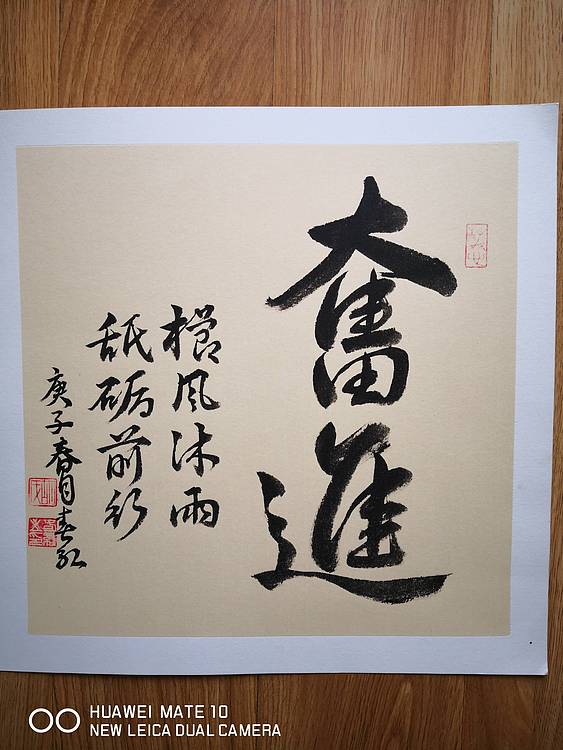 奮進
櫛風沐雨
舐砺前行
庚子春月春
HUAWEI MATE 10
NEW LEICA DUAL CAMERA